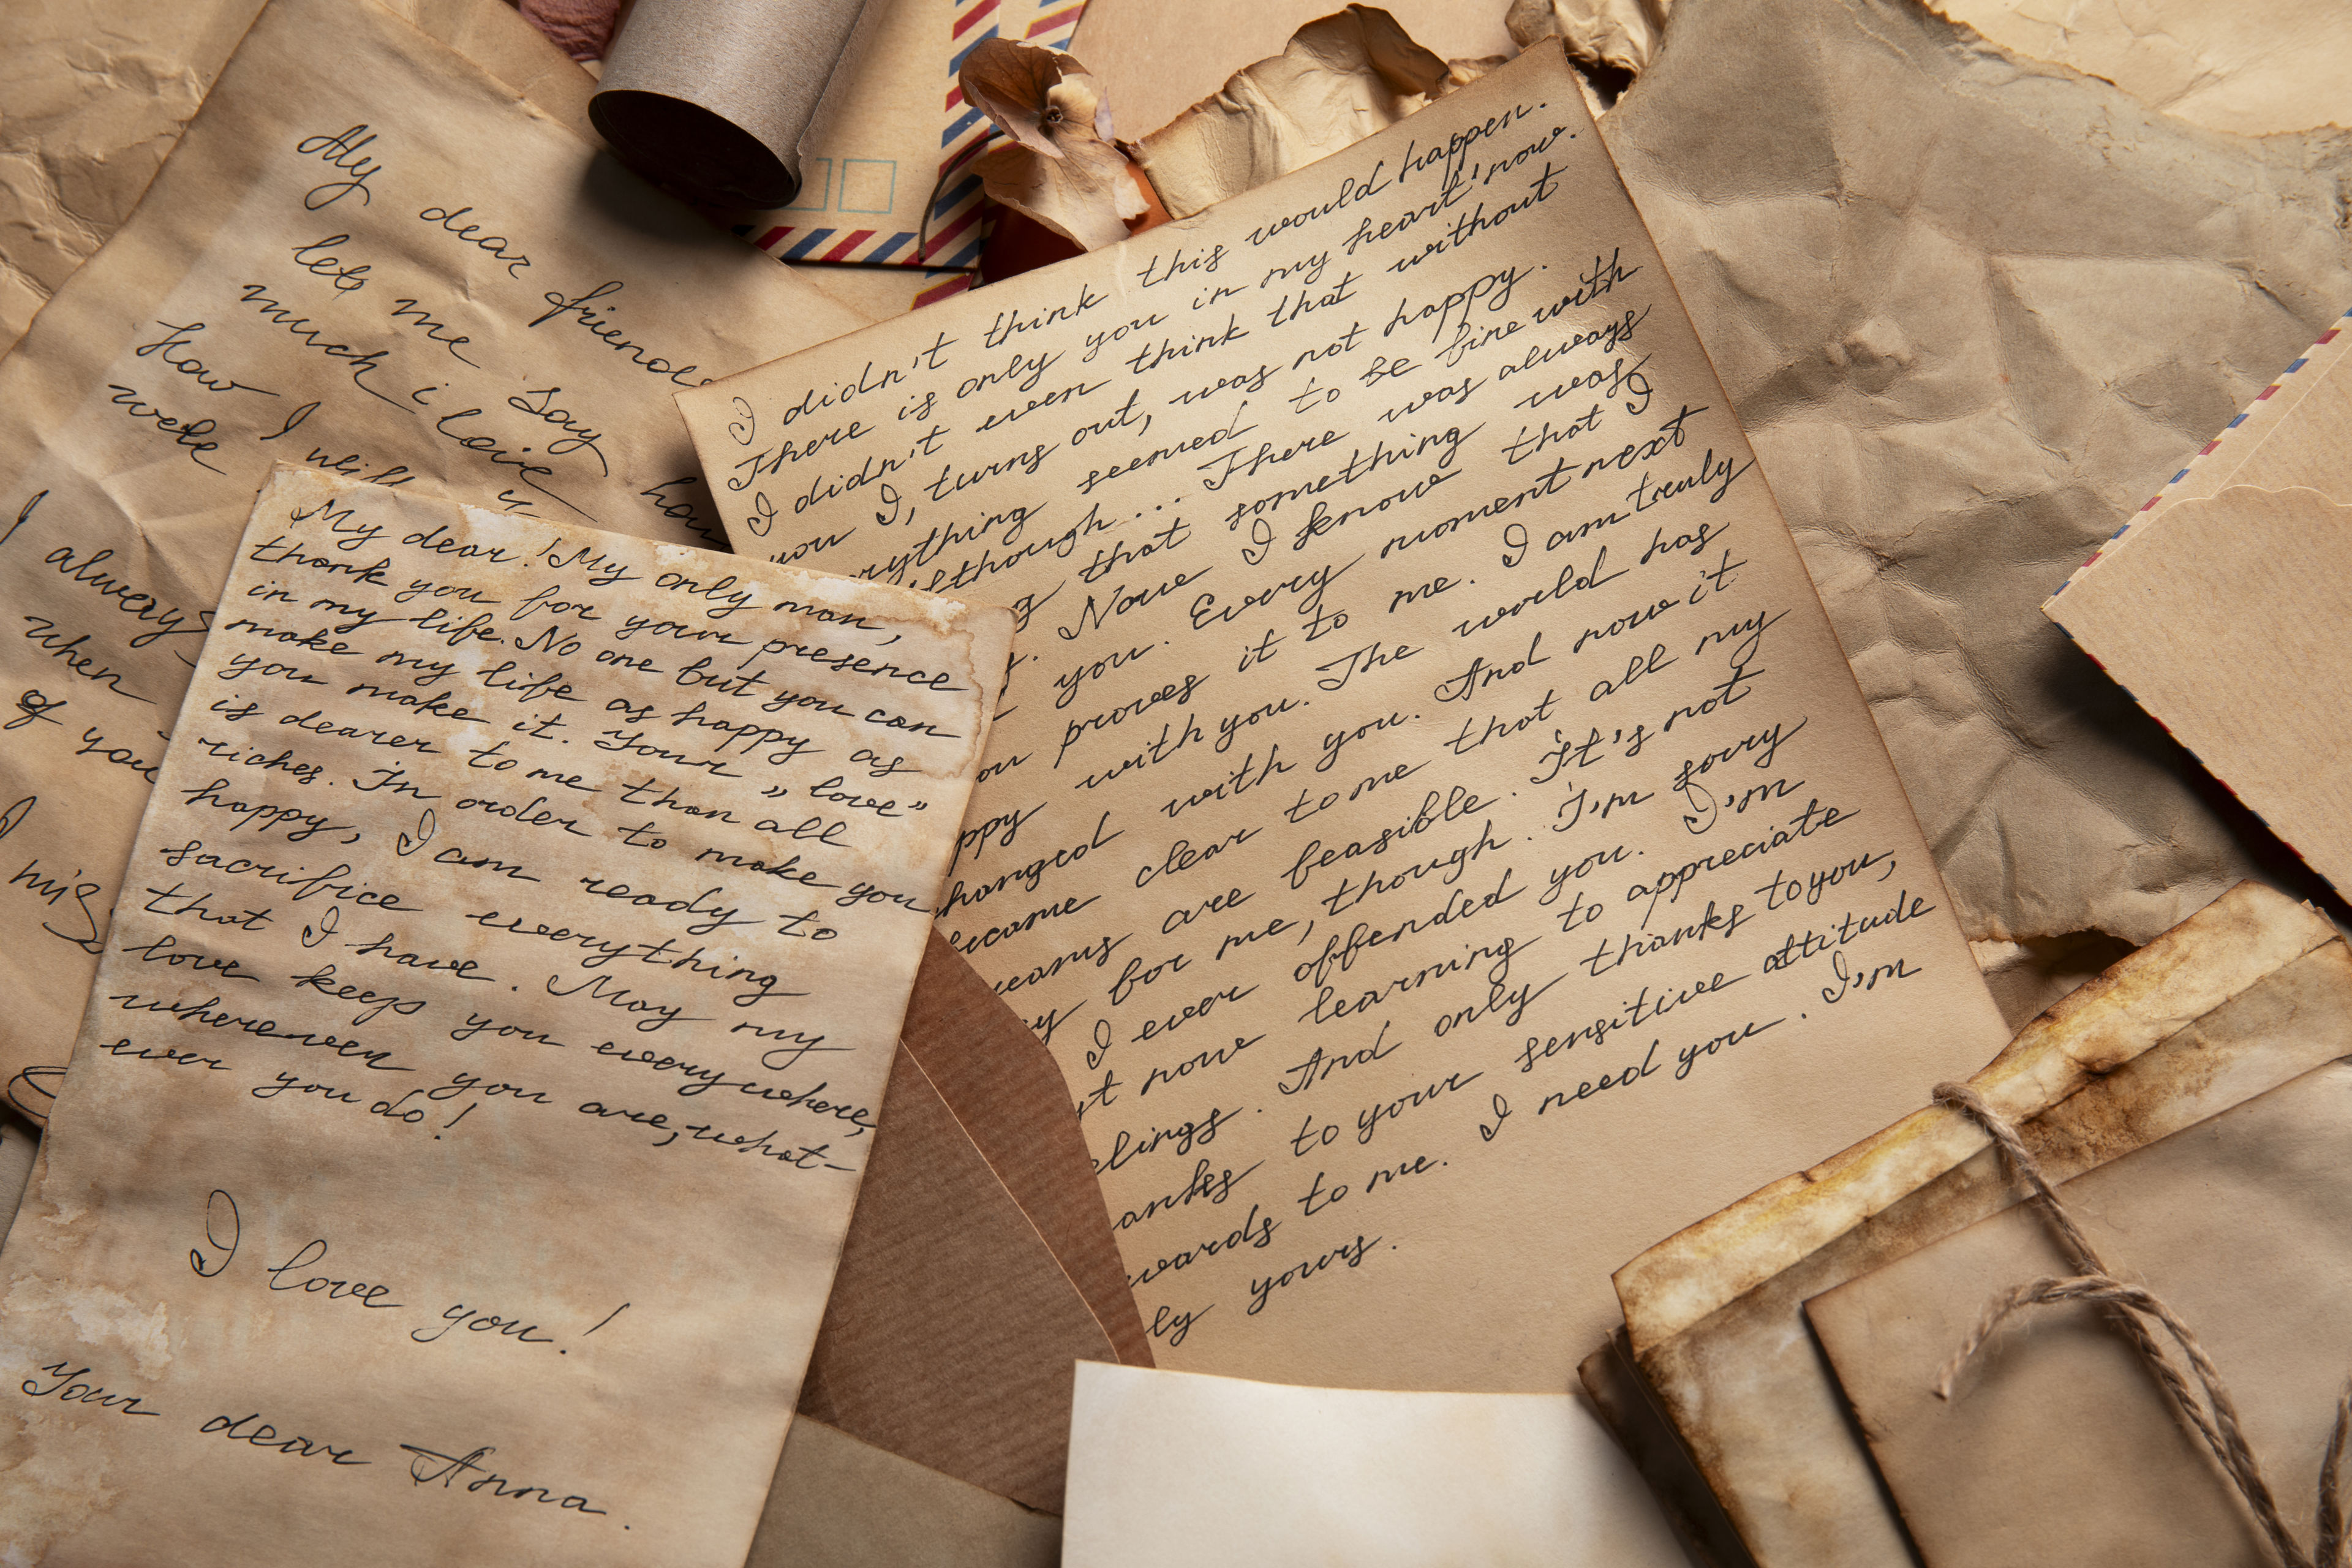 My dear friend
let me say
much i love
How I will
well
I always
when
of you
I mis
My dear! My only man,
thank you for your presence
in my life. No one but you can
make my life as happy as
you make it. Your "love"
is dearer to me than all
riches. In order to make you
happy, I am ready to
sacrifice everything
that I have. May my
love keep you everywhere,
wherewer you are, what-
ever you do!
I love you!
Your dear Anna.
I didn't think this would happen.
There is only you in my heart now.
I didn't even think that without
you I, turns out, was not happy.
rything seemed to be fine with
lthough... There was always
g that something was
t. Now I know that I
you. Every moment next
ou proves it to me. I am truly
ppy with you. The world has
hanged with you. And now it
ecame clear to me that all my
reams are feasible. It's not
y for me, though. I'm sorry
I ever offended you. I'm
st now learning to appreciate
elings. And only thanks to you,
anks to your sensitive attitude
wards to me. I need you. I'm
ly yours.